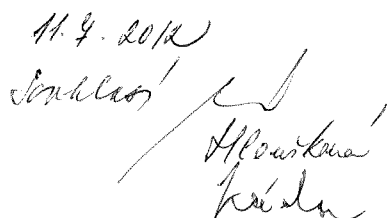 11. 7. 2012
Souhlasí
Hloušková